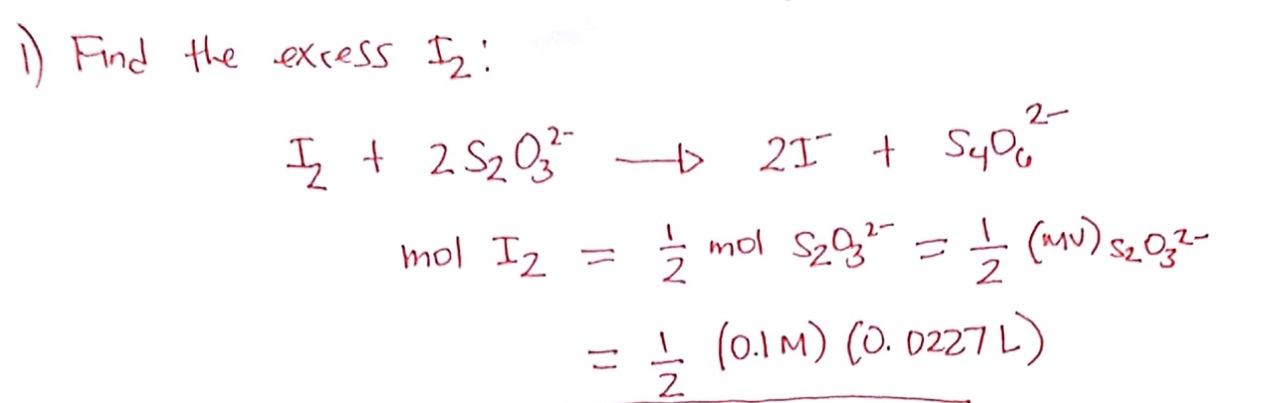 1) Find the excess I₂:
I₂ + 2 S₂O₃²⁻ → 2I⁻ + S₄O₆²⁻
mol I₂ = 1/2 mol S₂O₃²⁻ = 1/2 (MV) S₂O₃²⁻
= 1/2 (0.1 M) (0.0227 L)